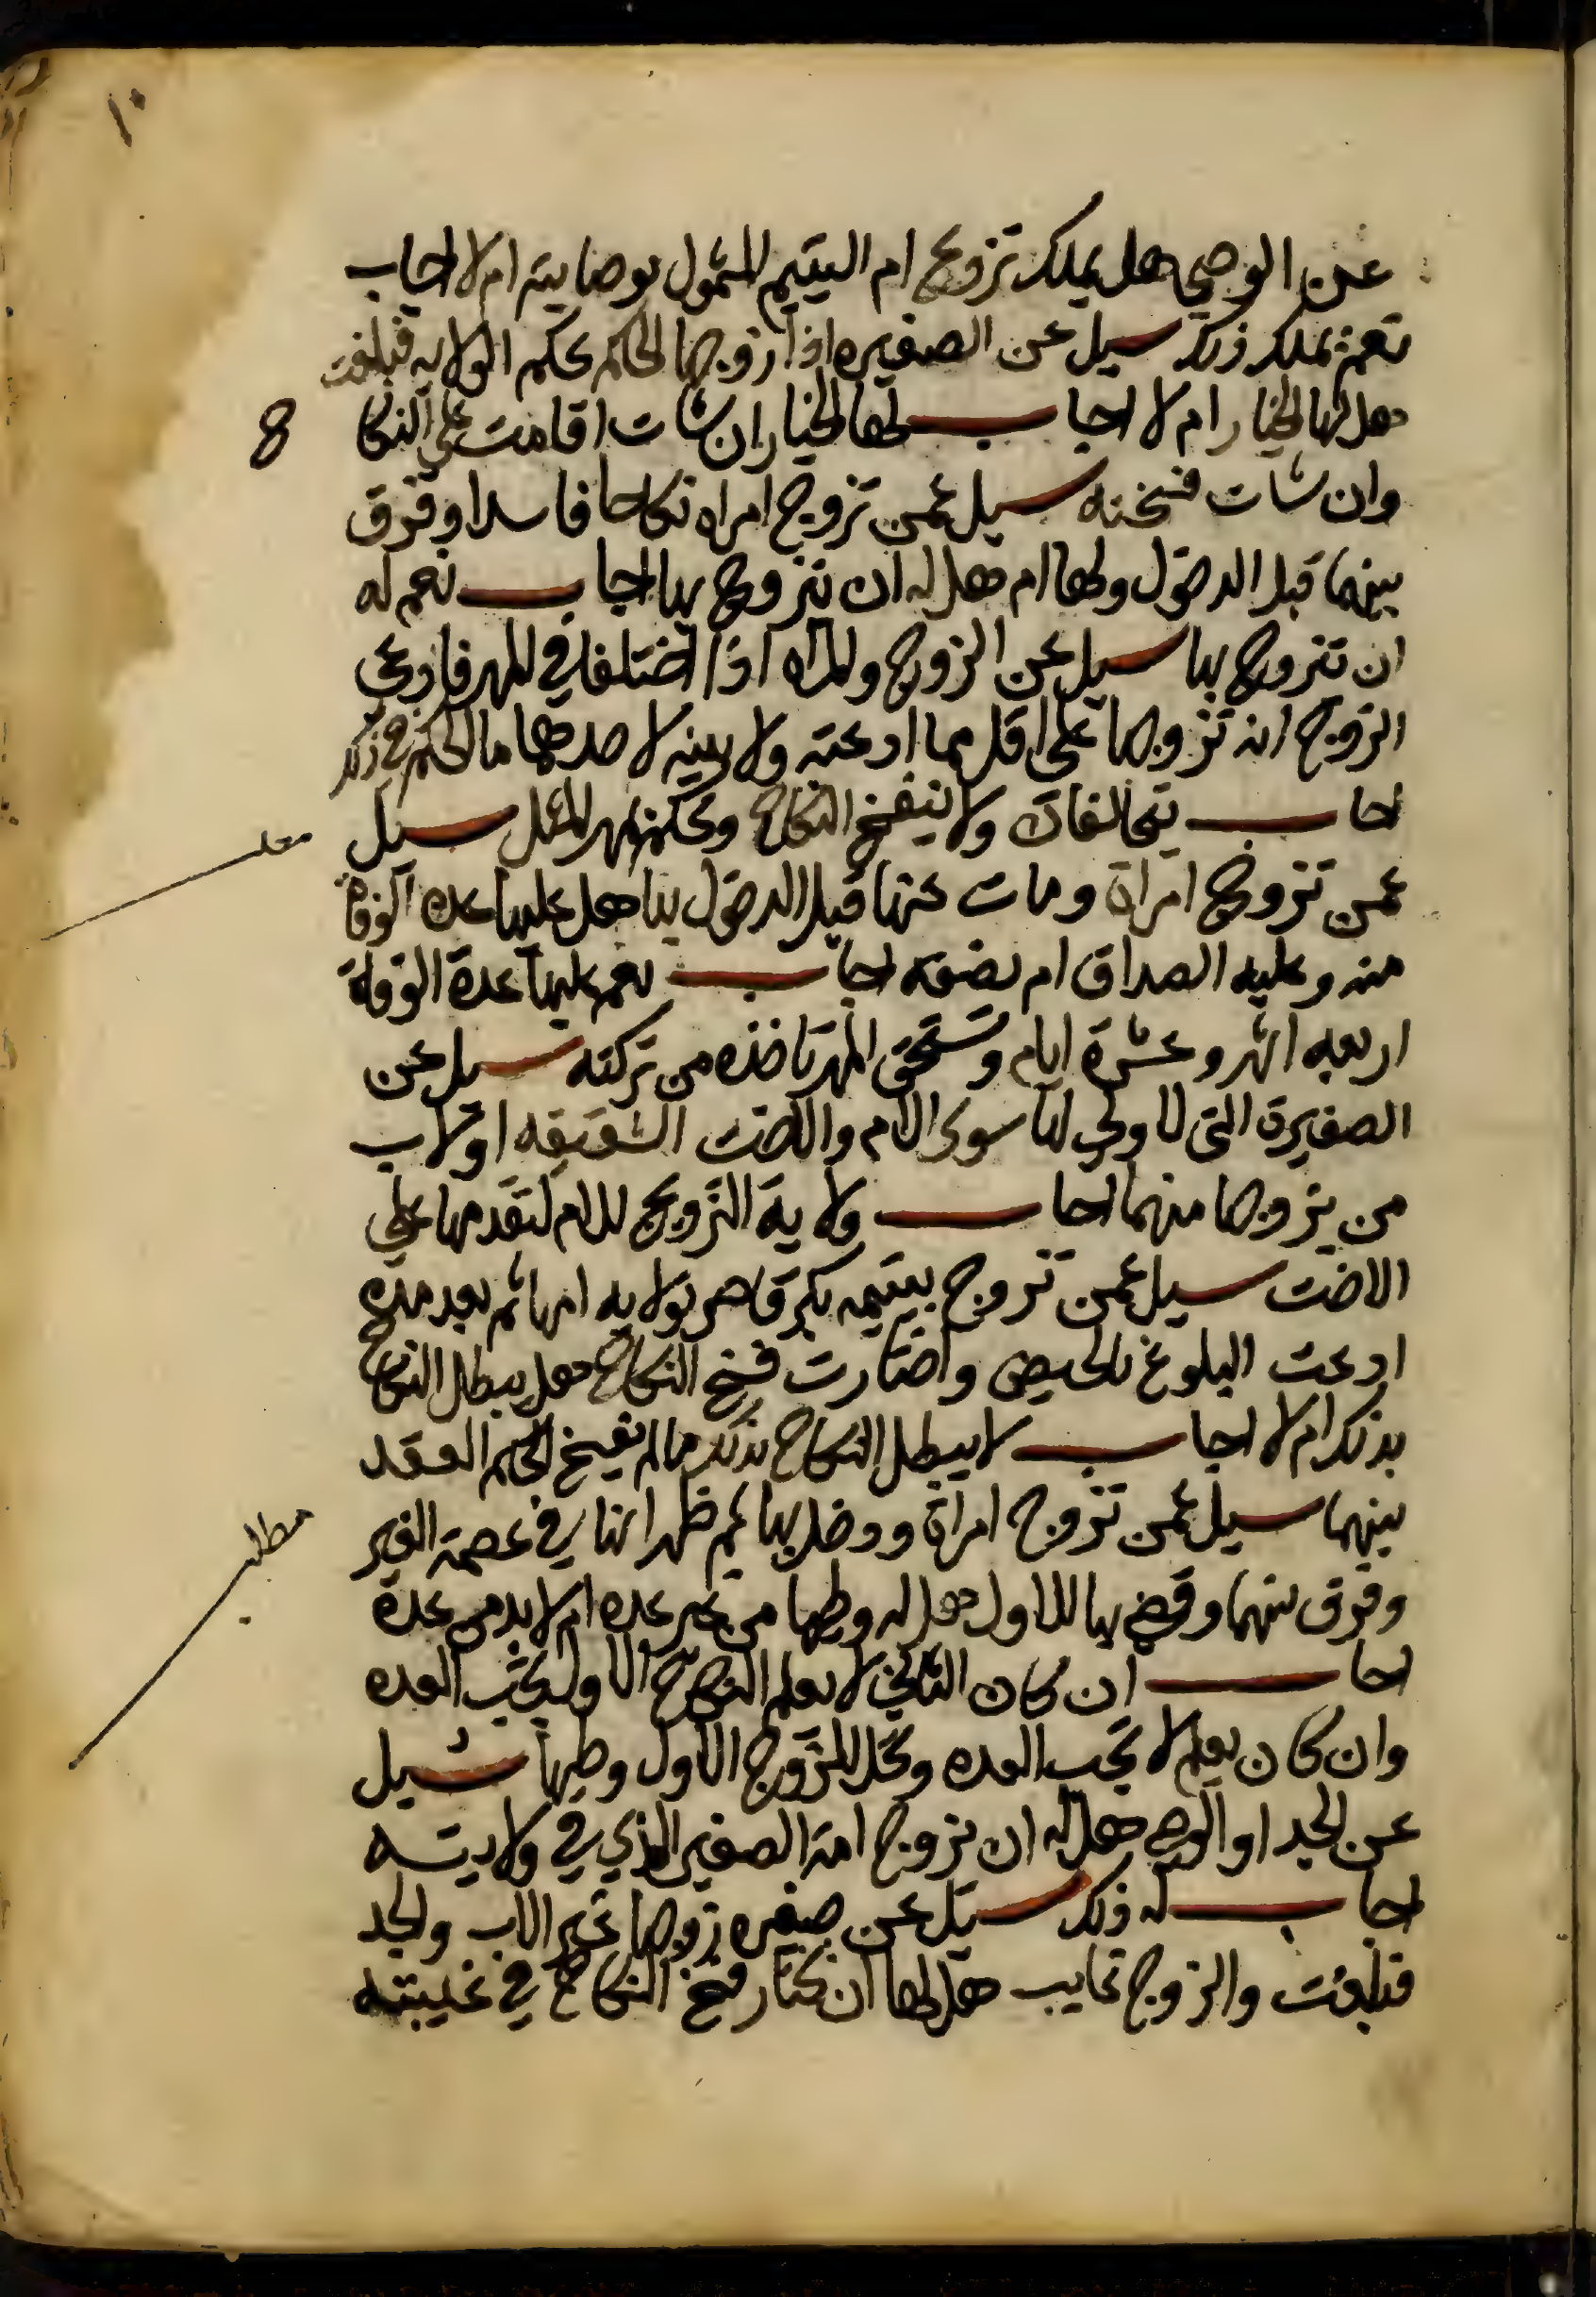 ١٠
عن الوصي هل يملك تزويج ام اليتيم المشمول بوصايته ام لا اجاب
نعم يملك ذلك سيل عن الصغيره اذا زوجها الحاكم بحكم الولايه فبلغت
هل لها الخيار ام لا اجاب لها الخيار ان شات اقامت على النكا
8
وان شات فسخته سيل عمن تزوج امراه نكاحا فاسدا وفرق
بينهما قبل الدخول ولها ام هل له ان يتزوج بها اجاب نعم له
ان يتزوج بها سيل عن الزوج والمراه اذا اختلفا في المهر فادعي
الزوج انه تزوجها على اقل مما ادعته ولا بينه لاحدهما ما الحكم في ذلك
اجاب يتحالفان ولا ينفسخ النكاح ويحكم مهر المثل سيل
مطلب
عمن تزوج امراة ومات عنها قبل الدخول بها هل عليها عدة الوفاة
منه وعليه الصداق ام نصفه اجاب نعم عليها عدة الوفاة
اربعه اشهر وعشرة ايام وتستحق المهر تاخذه من تركته سيل عن
الصغيرة التى لا ولي لها سوى الام والاخت الشقيقه او لاب
من يزوجها منهما اجاب ولاية التزويج للام لتقدمها علي
الاخت سيل عمن تزوج بيتيمه بكر قاصر بولايه امها ثم بعد مده
ادعت البلوغ بالحيض واختارت فسخ النكاح هل يبطل النكاح
بذلك ام لا اجاب لا يبطل النكاح بذلك ما لم يفسخ الحاكم العقد
بينهما سيل عمن تزوج امراة ودخل بها ثم ظهر انها في عصمة الغير
مطلب
وفرق بينهما وقضي بها للاول هل له وطيها من غير عده ام لا بد من عدة
اجاب ان كان الثاني لا يعلم النكاح الاول يجب العده
وان كان يعلم لا تجب العده ويحل للزوج الاول وطيها سيل
عن الجد او الوصي هل له ان يزوج امة الصغير الذي في ولايته
اجاب له ذلك سيل عن صغيره زوجها غير الاب والجد
فبلغت والزوج غايب هل لها ان تختار فسخ النكاح في غيبته